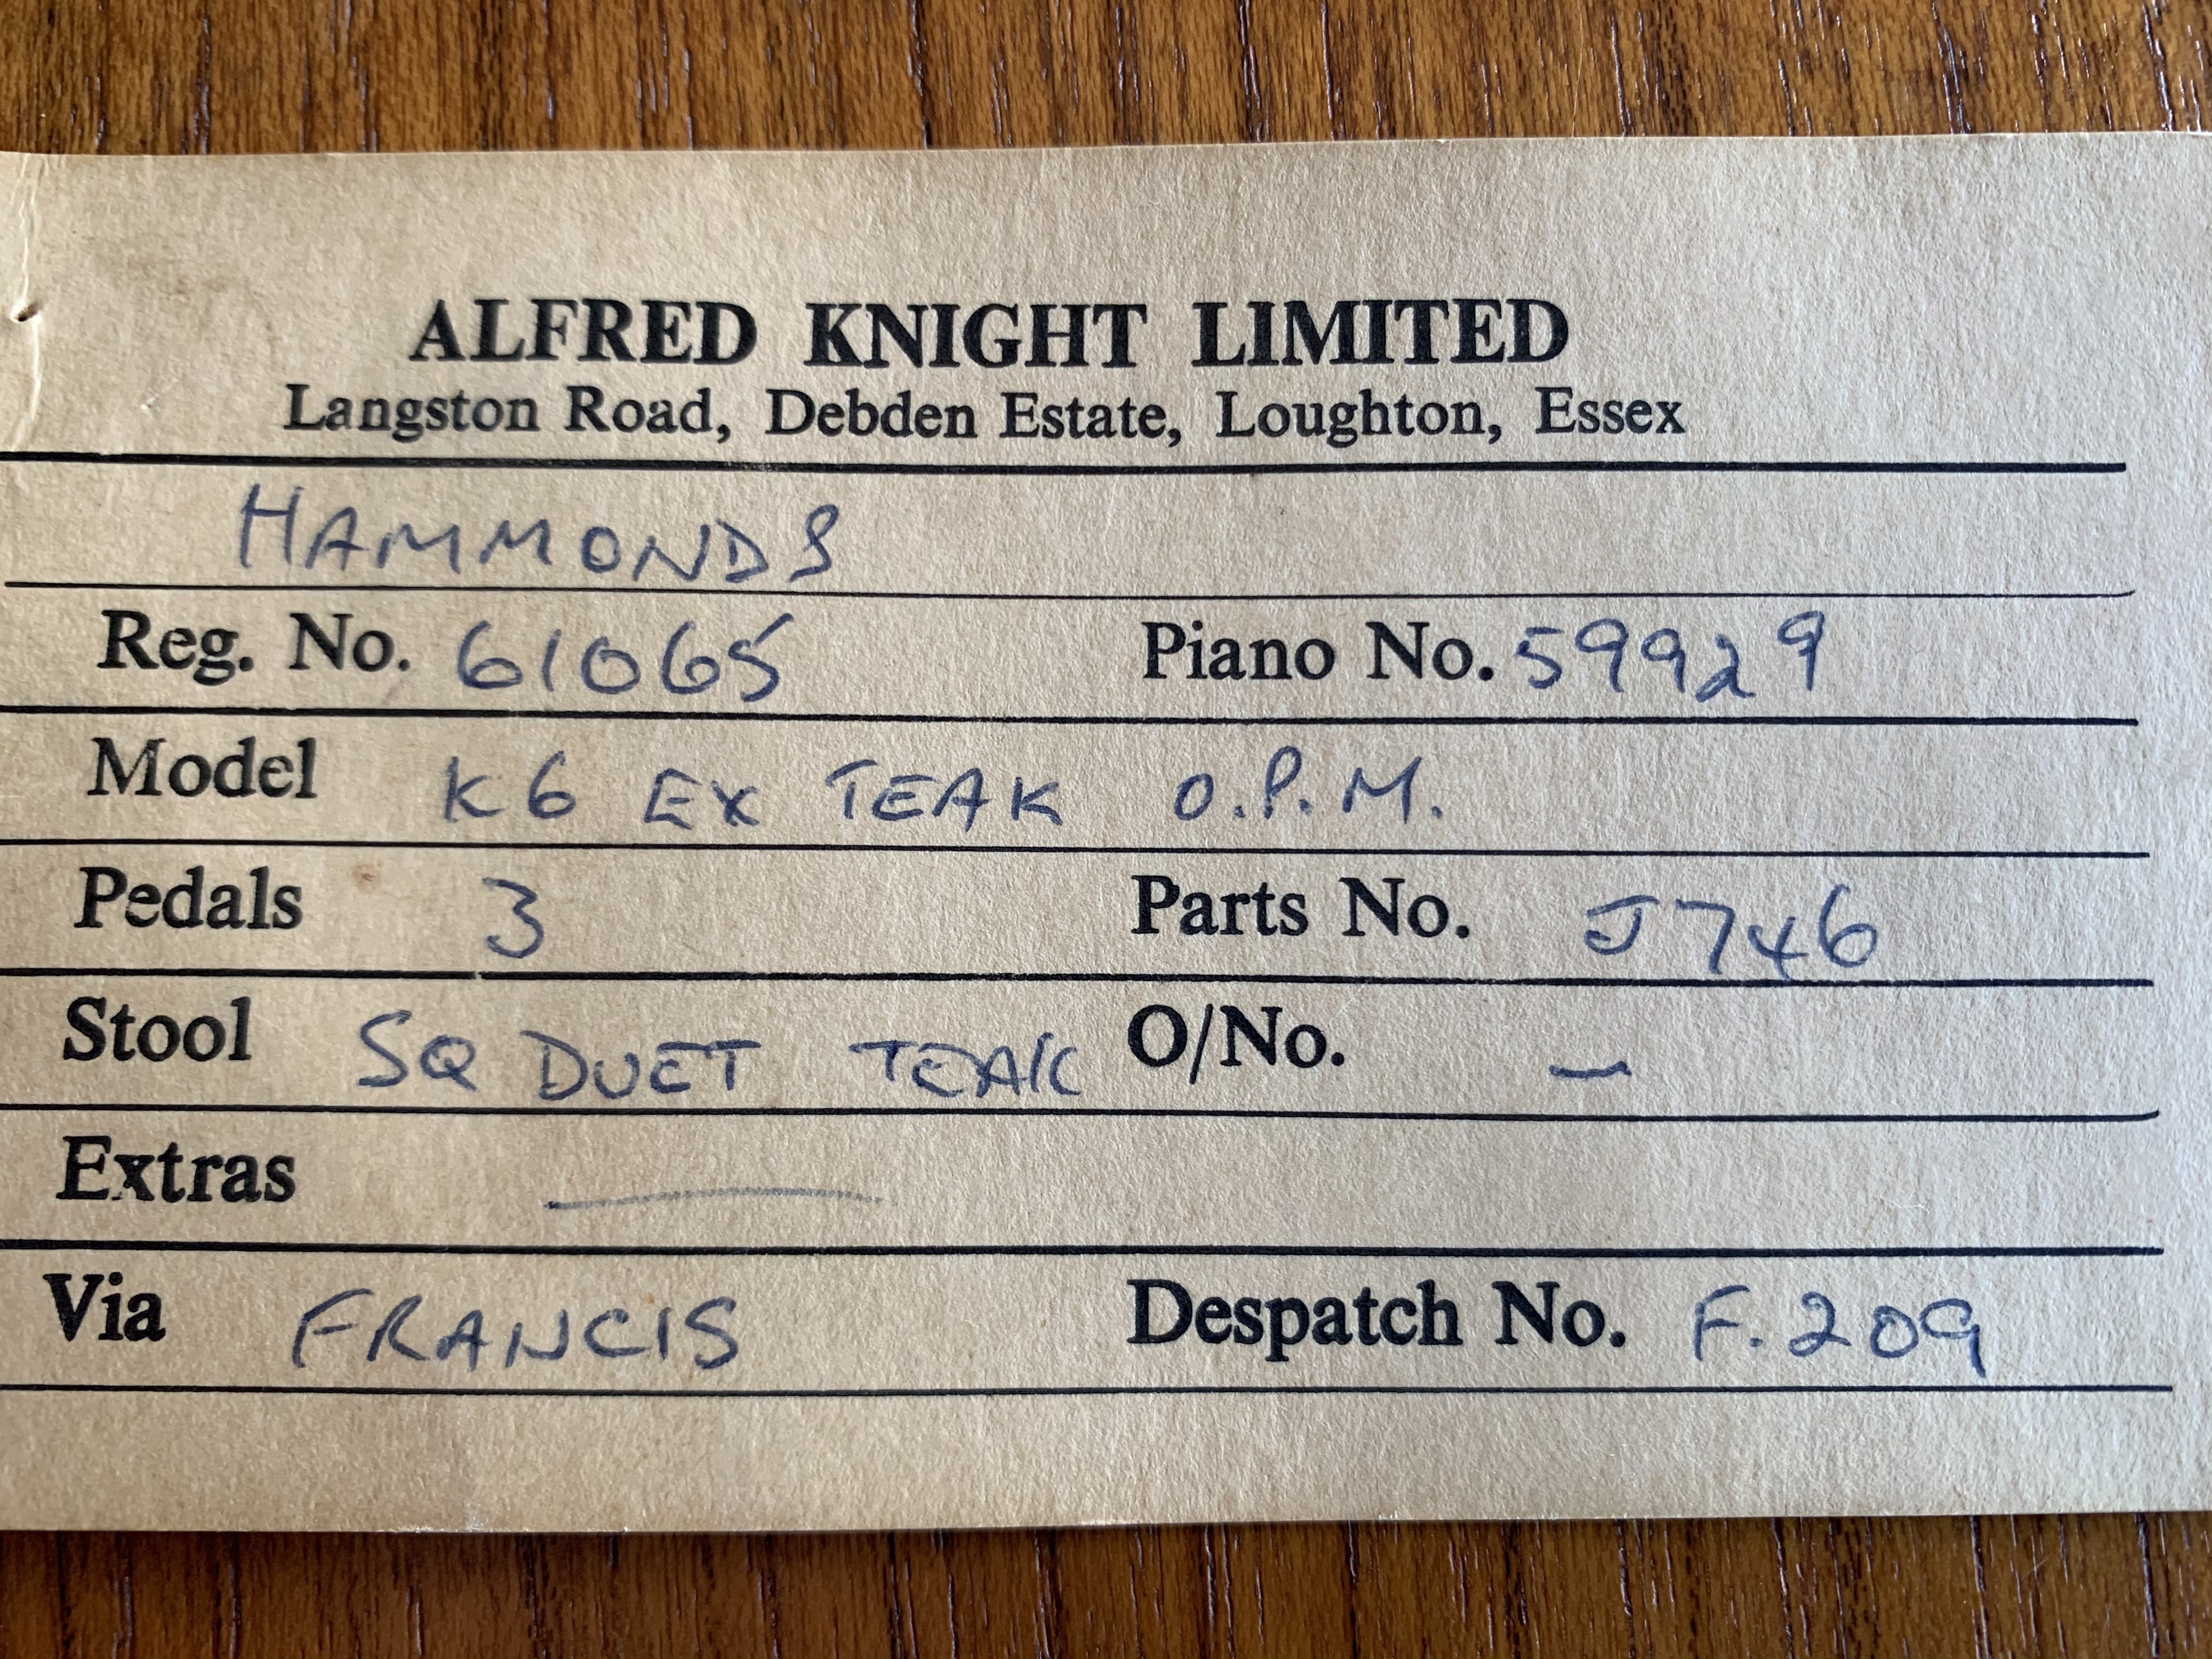 ALFRED KNIGHT LIMITED
Langston Road, Debden Estate, Loughton, Essex
HAMMONDS
Reg. No. 61065 Piano No. 59929
Model K6 EX TEAK O.P.M.
Pedals 3 Parts No. J746
Stool SQ DUET TEAK O/No. —
Extras —
Via FRANCIS Despatch No. F.209